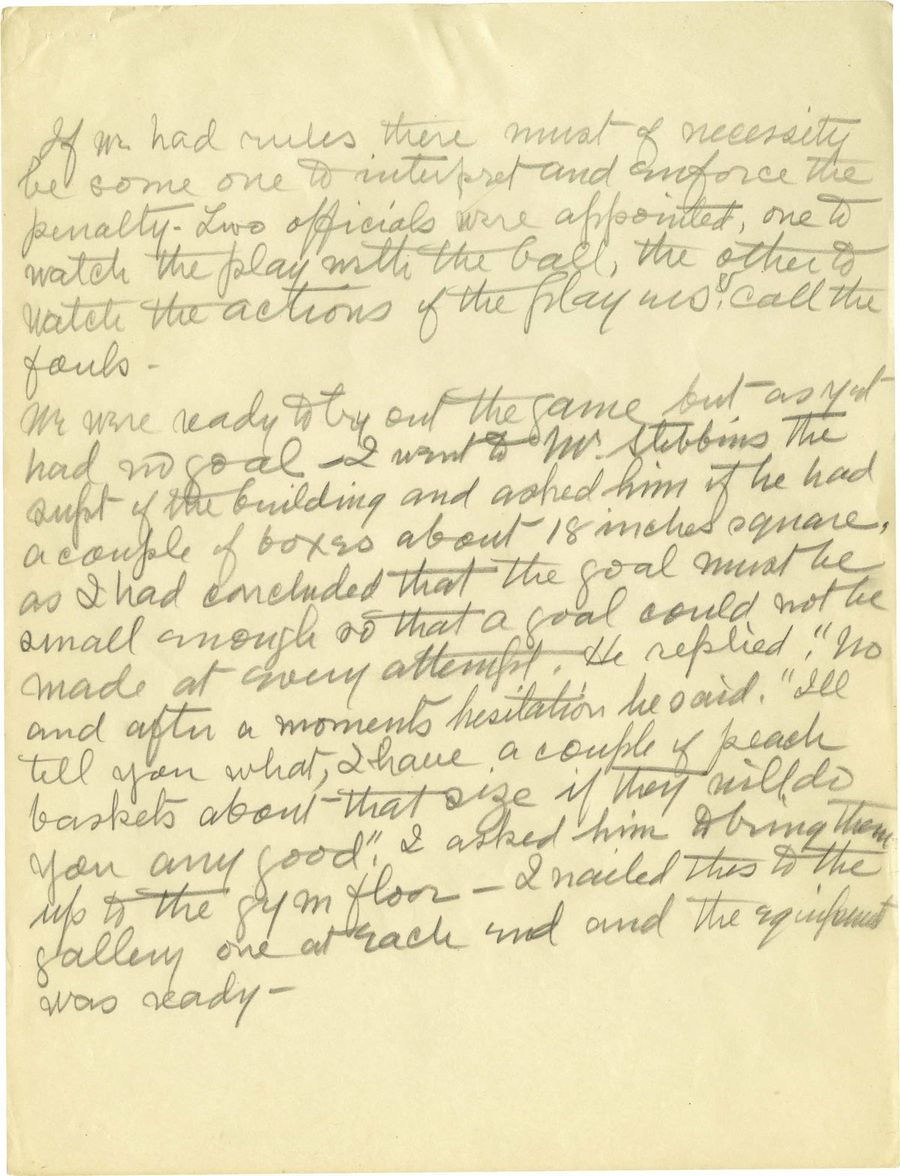 If we had rules there must of necessity
be some one to interpret and enforce the
penalty- Two officials were appointed, one to
watch the play with the ball, the other to
watch the actions of the players & call the
fouls -
We were ready to try out the game but as yet
had no goal - I went to Mr. Stebbins the
supt of the building and asked him if he had
a couple of boxes about 18 inches square,
as I had concluded that the goal must be
small enough so that a goal could not be
made at every attempt. He replied, "No
and after a moments hesitation he said. "Ill
tell you what, I have a couple of peach
baskets about that size if they will do
you any good". I asked him to bring them
up to the gym floor - I nailed thes to the
gallery one at each end and the equipment
was ready -